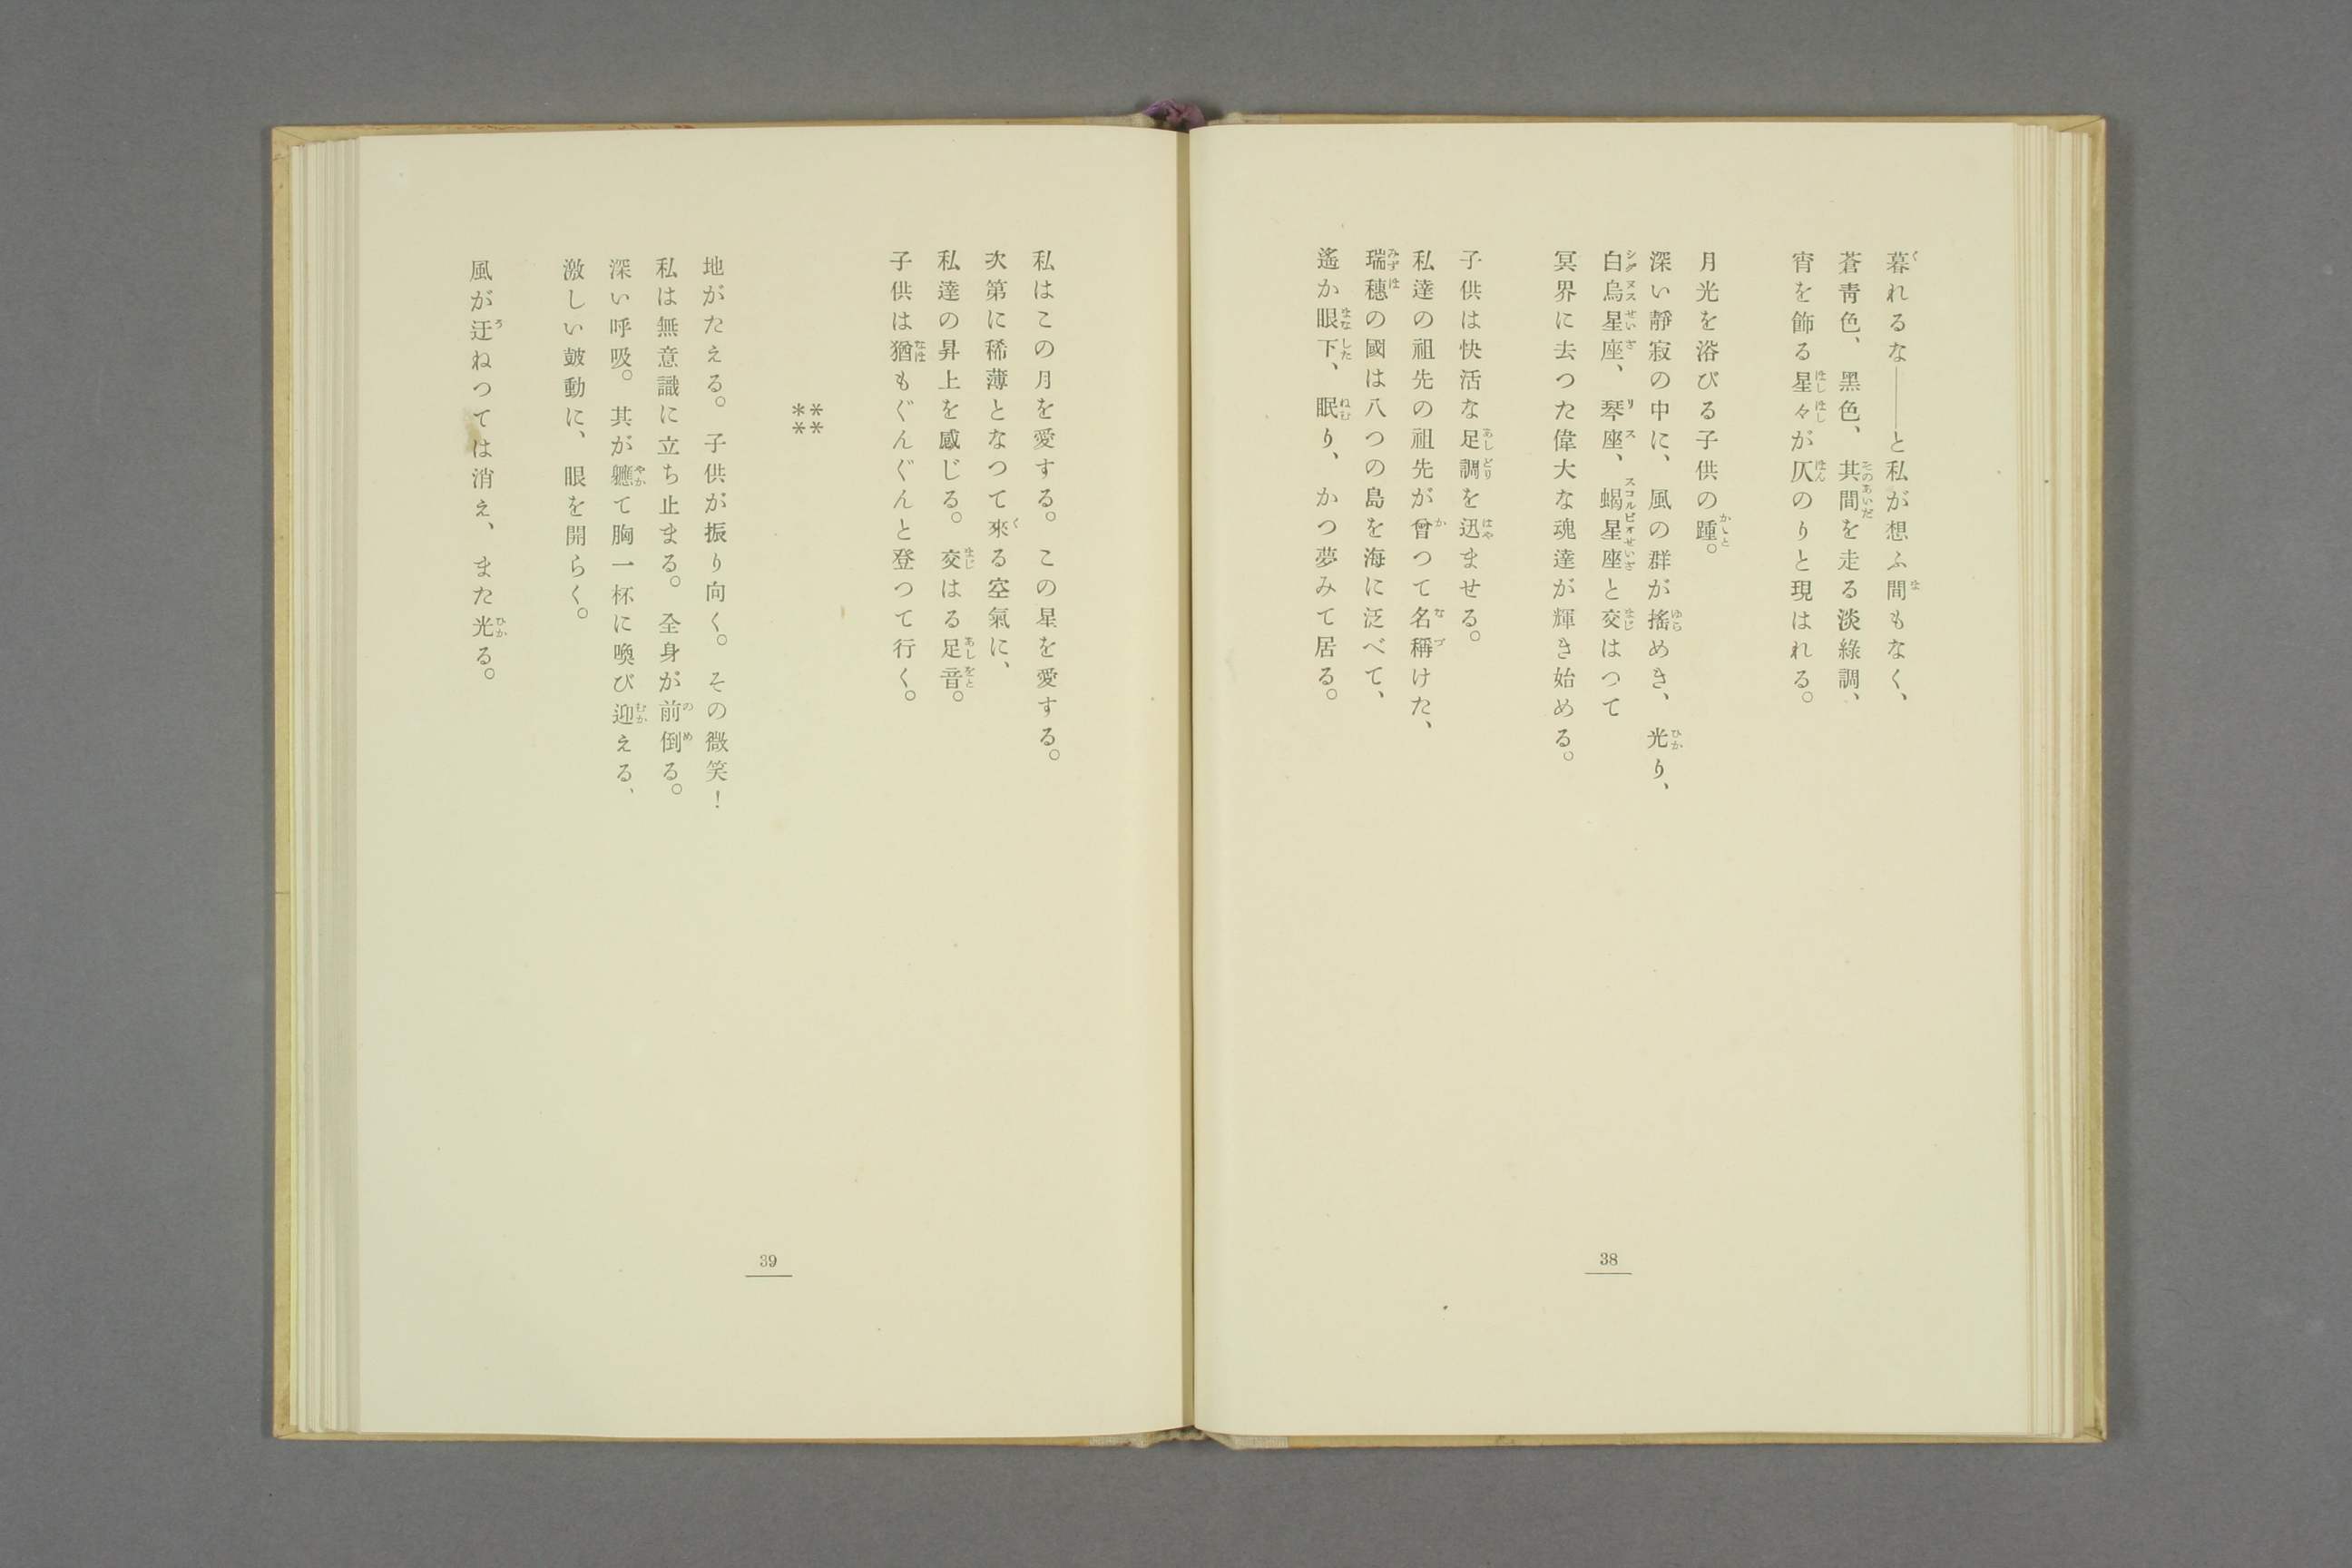 暮れるな――と私が想ふ間もなく、
蒼靑色、黑色、其間を走る淡綠調、
宵を飾る星々が仄のりと現はれる。
月光を浴びる子供の踵。
深い靜寂の中に、風の群が搖めき、光り、
白鳥星座、琴座、蝎星座と交はつて
冥界に去つた偉大な魂達が輝き始める。
子供は快活な足調を迅ませる。
私達の祖先の祖先が曾つて名稱けた、
瑞穗の國は八つの島を海に泛べて、
遙か眼下、眠り、かつ夢みて居る。
38
私はこの月を愛する。この星を愛する。
次第に稀薄となつて來る空氣に、
私達の昇上を感じる。交はる足音。
子供は猶もぐんぐんと登つて行く。
****
地がたえる。子供が振り向く。その微笑!
私は無意識に立ち止まる。全身が前倒る。
深い呼吸。其が軈て胸一杯に喚び迎える、
激しい鼓動に、眼を開らく。
風が迂ねつては消え、また光る。
39